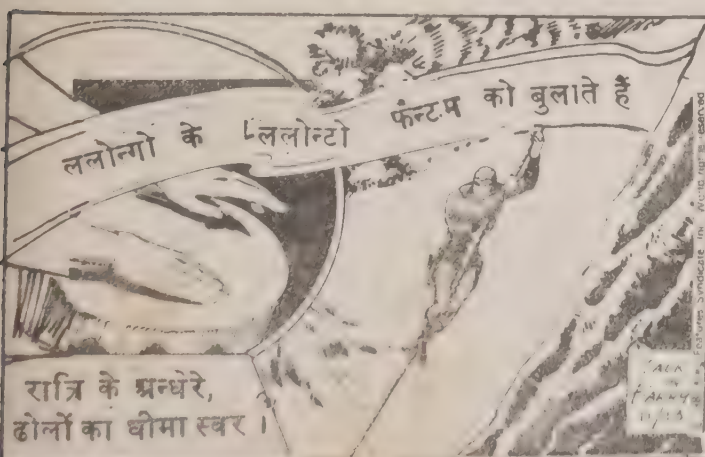 ललोन्गो के ललोन्टो फॅन्टम को बुलाते हैं
रात्रि के अन्धेरे,
ढोलों का धीमा स्वर ।
Features Syndicate Inc World rights reserved